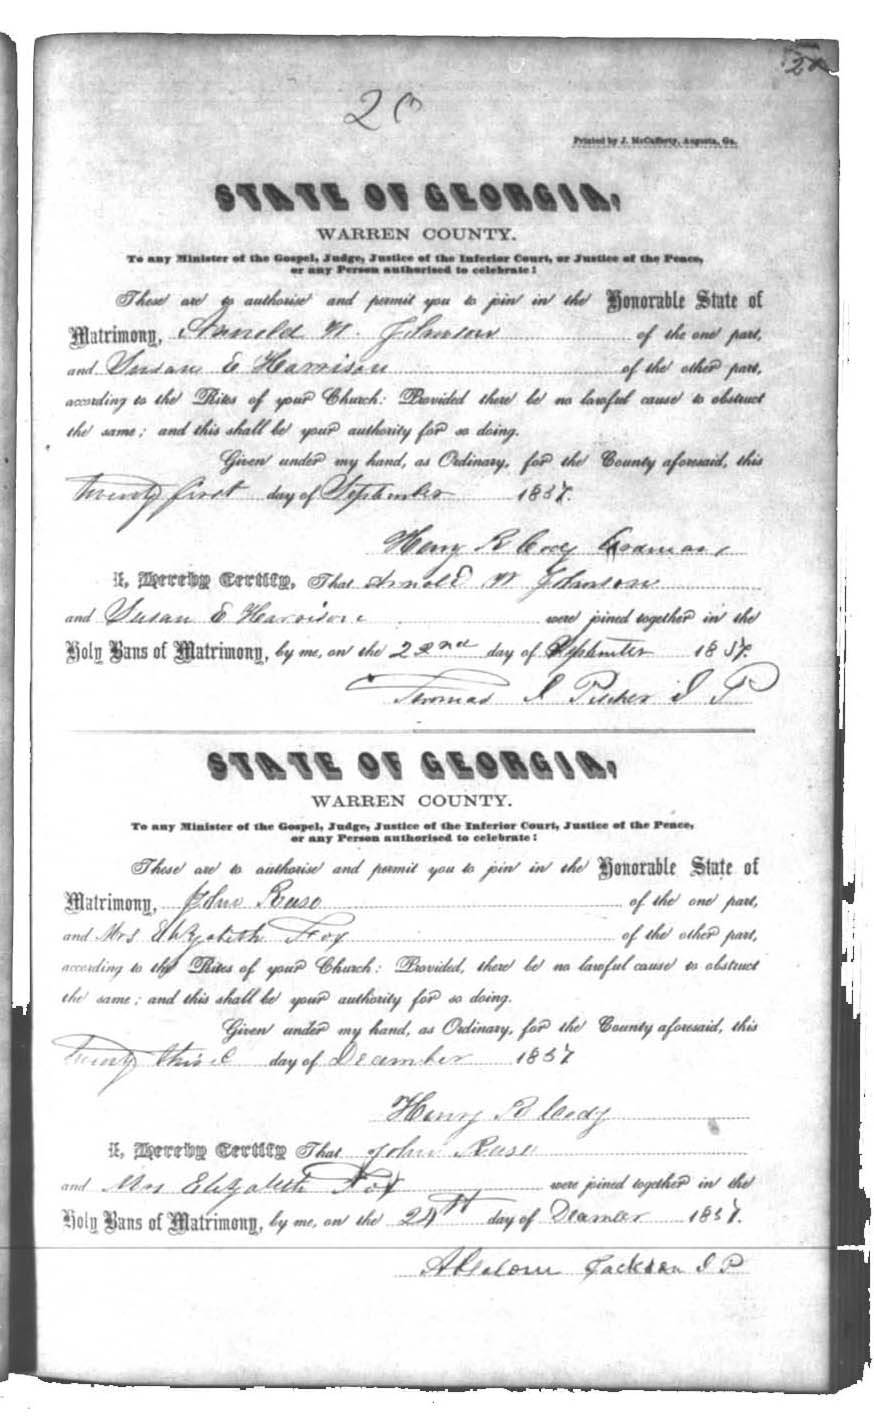 20
Printed by J. McCafferty, Augusta, Ga.
STATE OF GEORGIA,
WARREN COUNTY.
To any Minister of the Gospel, Judge, Justice of the Inferior Court, or Justice of the Peace,
or any Person authorised to celebrate:
These are to authorise and permit you to join in the Honorable State of
Matrimony, Arnold W. Johnson of the one part,
and Susan E Harrison of the other part,
according to the Rites of your Church: Provided there be no lawful cause to obstruct
the same; and this shall be your authority for so doing.
Given under my hand, as Ordinary, for the County aforesaid, this
twenty first day of September 1857.
Henry B Cody
I, Hereby Certify, That Arnold W Johnson
and Susan E Harrison were joined together in the
Holy Bans of Matrimony, by me, on the 22nd day of September 1857.
Thomas J P
STATE OF GEORGIA,
WARREN COUNTY.
To any Minister of the Gospel, Judge, Justice of the Inferior Court, Justice of the Peace,
or any Person authorised to celebrate:
These are to authorise and permit you to join in the Honorable State of
Matrimony, John Ruse of the one part,
and Mrs Elizabeth Foy of the other part,
according to the Rites of your Church: Provided, there be no lawful cause to obstruct
the same; and this shall be your authority for so doing.
Given under my hand, as Ordinary, for the County aforesaid, this
twenty third day of December 1857
Henry B Cody
I, Hereby Certify That John Ruse
and Mrs Elizabeth Foy were joined together in the
Holy Bans of Matrimony, by me, on the 24th day of December 1857.
Absalom Jackson J P